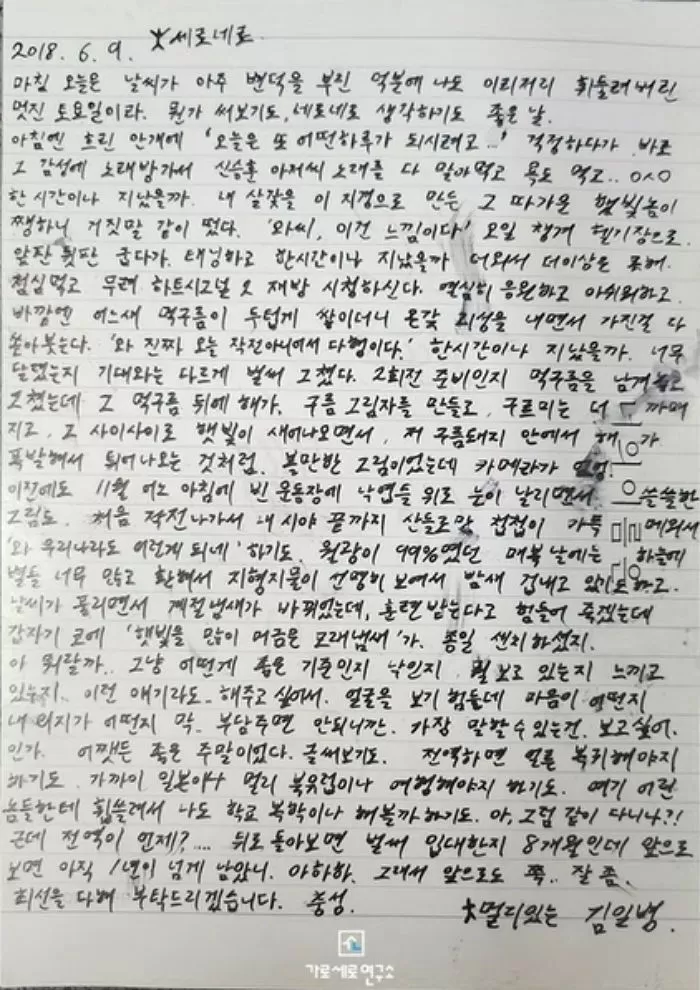 大세로네로
2018. 6. 9.
마침 오늘은 날씨가 아주 변덕을 부린 덕분에 나도 이리저리 휘둘려버린
멋진 토요일이라. 뭔가 써보기도, 네로네로 생각하기도 좋은 날.
아침엔 흐린 안개에 '오늘은 또 어떤하루가 되시려고...' 걱정하다가 바로
그 감성에 노래방가서 신승훈 아저씨 노래를 다 말아먹고 욕도 먹고.. ㅇㅅㅇ
한시간이나 지났을까. 내 살갗을 이 지경으로 만든 그 따가운 햇빛놈이
쨍하니 거짓말 같이 떴다. '와씨, 이건 느낌이다' 오일 챙겨 헬기장으로.
앞판 뒷판 굽다가. 태닝하고 한시간이나 지났을까 더워서 더이상은 못해.
점심먹고 무려 하트시그널 2 재방 시청하신다. 열심히 응원하고 아쉬워하고.
바깥엔 어느새 먹구름이 두텁게 쌓이더니 온갖 괴성을 내면서 가진걸 다
쏟아붓는다. '와 진짜 오늘 작전아니어서 다행이다.' 한시간이나 지났을까. 너무
달렸는지 기대와는 다르게 벌써 그쳤다. 2회전 준비인지 먹구름을 남겨놓고
그쳤는데 그 먹구름 뒤에 해가. 구름 그림자를 만들고, 구르미는 더 까매
지고, 그 사이사이로 햇빛이 새어나오면서, 저 구름돼지 안에서 해가
폭발해서 튀어나오는 것처럼. 볼만한 그림이었는데 카메라가 없엉
이전에도 11월 어느 아침에 빈 운동장에 낙엽들 위로 눈이 날리면서 쓸쓸한
그림도. 처음 작전나가서 내 시야 끝까지 산들로만 첩첩이 가득 메워서
'와 우리나라도 이렇게 되네' 하기도. 월광이 99%였던 매복 날에는 하늘에
별들 너무 많고 환해서 지형지물이 선명히 보여서 밤새 겁내고 있기도하고.
날씨가 풀리면서 계절냄새가 바뀌었는데, 훈련받는다고 힘들어 죽겠는데
갑자기 코에 '햇빛을 많이 머금은 모래냄새'가. 종일 센치하셨지.
아 뭐랄까.. 그냥 어떻게 좋은 기준인지 낙인지 뭘 보고 있는지 느끼고
있는지.. 이런 얘기라도.. 해주고 싶어서. 얼굴을 보기 힘든데 마음이 어떤지
내 의지가 어떤지 막.. 부담주면 안되니깐. 가장 말할 수 있는건. 보고싶어.
인가. 어쨋든 좋은 주말이었다. 글써보기도. 전역하면 얼른 복귀해야지
하기도. 가까이 일본이나 멀리 북유럽이나 여행해야지 하기도. 여기 어린
놈들한테 휩쓸려서 나도 학교 복학이나 해볼까 하기도. 아, 그럼 같이 다니나?!
근데 전역이 언제?.... 뒤로 돌아보면 벌써 입대한지 8개월인데 앞으로
보면 아직 1년이 넘게 남았니. 아하하. 그래서 앞으로도 쭉.. 잘 좀.
최선을 다해 부탁드리겠습니다. 충성.
大멀리있는 김일병.
가로세로연구소